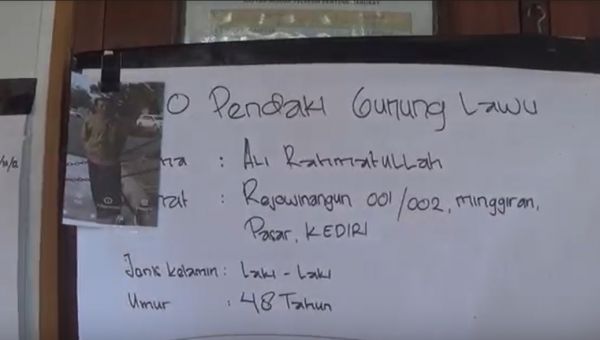 O Pendaki Gunung Lawu
: ALi Rahmatullah
: Rejowinangun 001/002, Minggiran,
Pasar, KEDIRI
Jenis kelamin : Laki - Laki
Umur : 48 Tahun